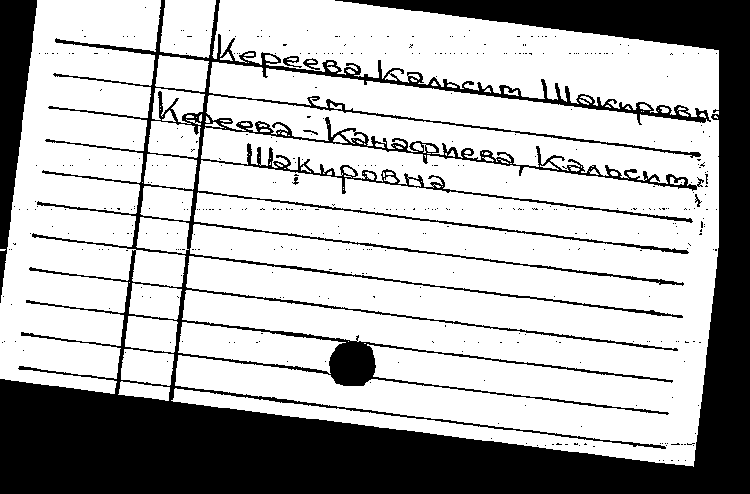 Кереева, Кальсим Шакировна
см.
Кереева - Канафиева, Кальсим
Шакировна